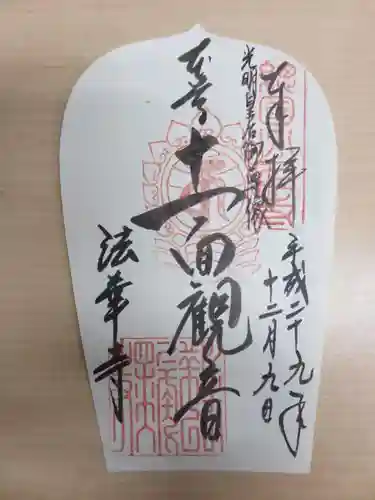 奉拝
平成二十九年
十二月九日
光明皇后御遺徳
本尊
十一面観音
法華寺